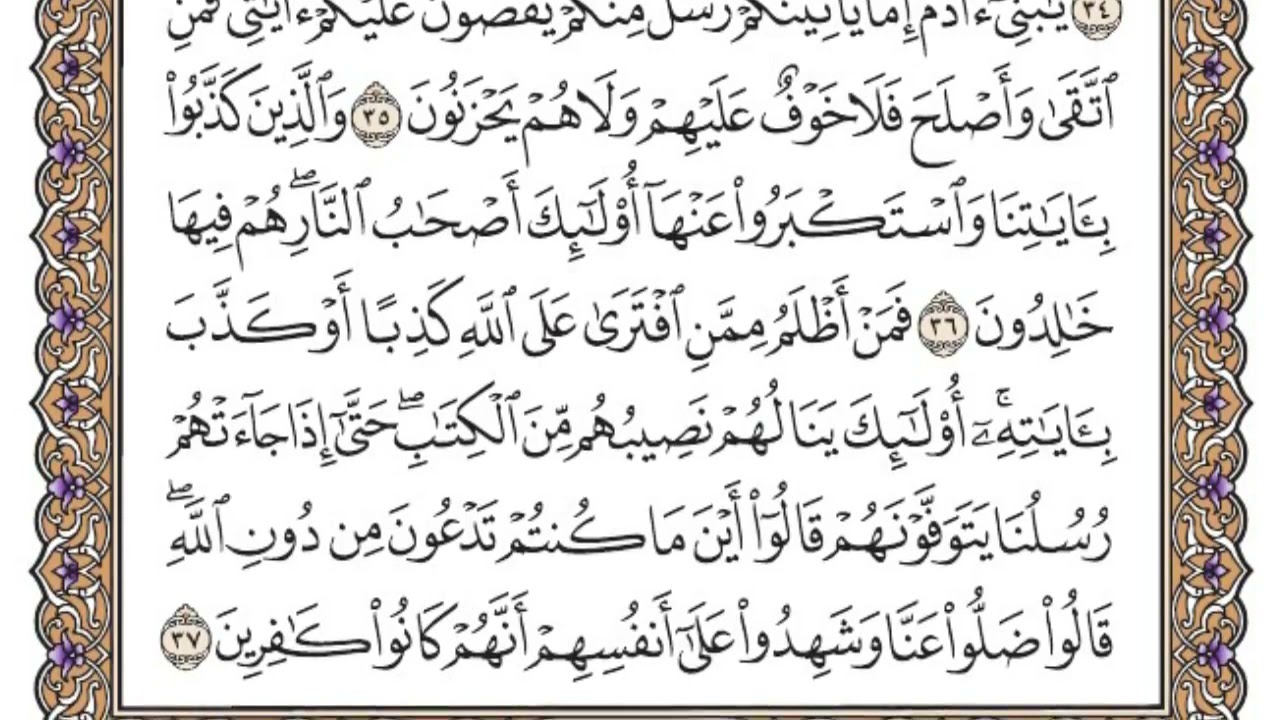 ٣٤ يَٰبَنِىٓ ءَادَمَ إِمَّا يَأْتِيَنَّكُمْ رُسُلٌ مِّنكُمْ يَقُصُّونَ عَلَيْكُمْ ءَايَٰتِى فَمَنِ
ٱتَّقَىٰ وَأَصْلَحَ فَلَا خَوْفٌ عَلَيْهِمْ وَلَا هُمْ يَحْزَنُونَ ٣٥ وَٱلَّذِينَ كَذَّبُوا۟
بِـَٔايَٰتِنَا وَٱسْتَكْبَرُوا۟ عَنْهَآ أُو۟لَٰٓئِكَ أَصْحَٰبُ ٱلنَّارِ ۖ هُمْ فِيهَا
خَٰلِدُونَ ٣٦ فَمَنْ أَظْلَمُ مِمَّنِ ٱفْتَرَىٰ عَلَى ٱللَّهِ كَذِبًا أَوْ كَذَّبَ
بِـَٔايَٰتِهِۦٓ ۚ أُو۟لَٰٓئِكَ يَنَالُهُمْ نَصِيبُهُم مِّنَ ٱلْكِتَٰبِ ۖ حَتَّىٰٓ إِذَا جَآءَتْهُمْ
رُسُلُنَا يَتَوَفَّوْنَهُمْ قَالُوٓا۟ أَيْنَ مَا كُنتُمْ تَدْعُونَ مِن دُونِ ٱللَّهِ ۖ
قَالُوا۟ ضَلُّوا۟ عَنَّا وَشَهِدُوا۟ عَلَىٰٓ أَنفُسِهِمْ أَنَّهُمْ كَانُوا۟ كَٰفِرِينَ ٣٧